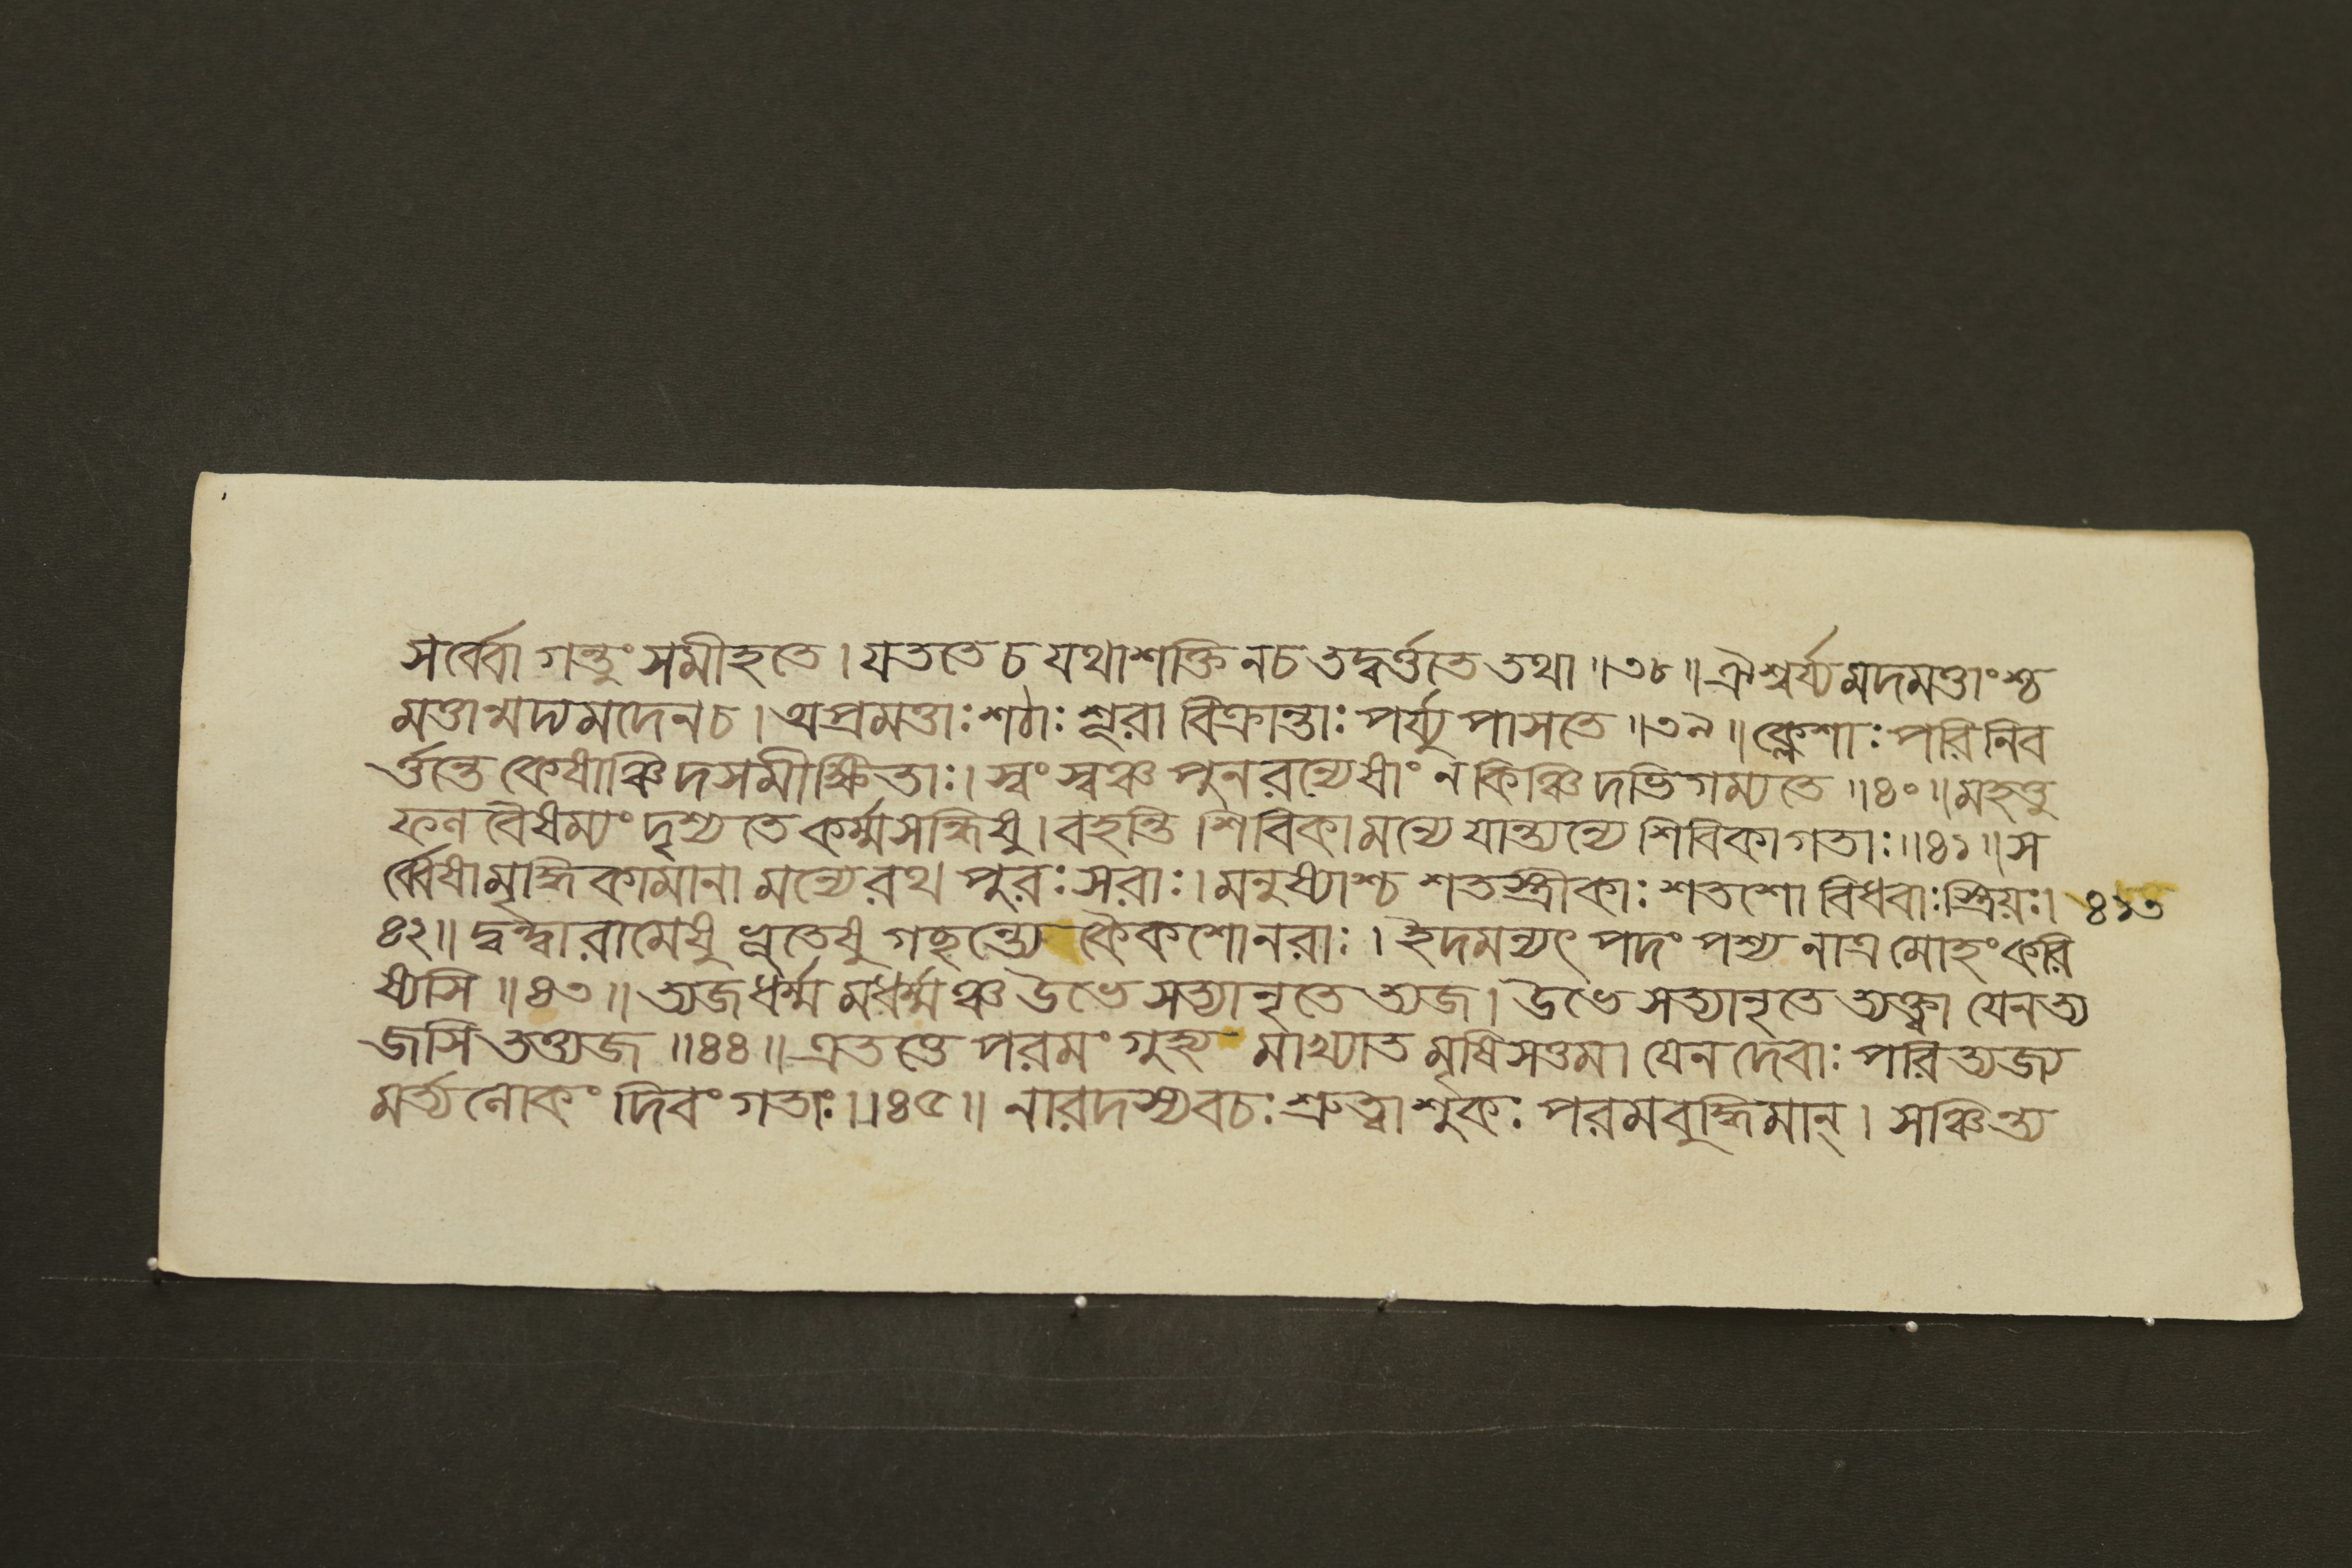 সর্ব্বো গন্তুং সমীহতে । যততে চ যথাশক্তি নচ তদ্বর্ত্ততে তথা ॥৩৮॥ ঐশ্বর্য্যমদমত্তাংশ্চ
মত্তান্মদ্যমদেনচ । অপ্রমত্তাঃ শঠাঃ শূরা বিক্রান্তাঃ পর্য্যুপাসতে ॥৩৯॥ ক্লেশাঃ পরিনিব
র্ত্তন্তে কেষাঞ্চিদসমীক্ষিতাঃ । স্বং স্বঞ্চ পুনরন্যেষাং ন কিঞ্চিদভিগম্যতে ॥৪০॥ মহত্তু
ফল বৈষম্যং দৃশ্যতে কর্ম্মসন্ধিষু । বহন্তি শিবিকামন্যে যান্ত্যন্যে শিবিকাগতাঃ ॥৪১॥ স
র্ব্বেষামৃদ্ধিকামানা মন্যেরথ পুরঃসরাঃ । মনুষ্যাশ্চ শতস্ত্রীকাঃ শতশো বিধবাঃস্ত্রিয়ঃ । ৪১৩
৪২॥ দ্বন্দ্বারামেষু ভূতেষু গচ্ছন্ত্যে কৈকশোনরাঃ । ইদমন্যৎ পদং পশ্য নাত্র মোহং করি
ষ্যসি ॥৪৩॥ ত্যজধর্ম্ম মধর্ম্মঞ্চ উভে সত্যানৃতে ত্যজ । উভে সত্যানৃতে ত্যক্ত্বা যেনত্য
জসি তত্ত্যজ ॥৪৪॥ এতত্তে পরমং গুহ্য মাখ্যাত মৃষিসত্তম । যেন দেবাঃ পরিত্যজ্য
মর্ত্যলোকং দিবং গতাঃ ॥৪৫॥ নারদস্যবচঃ শ্রুত্বা শুকঃ পরমবুদ্ধিমান্ । সঞ্চিন্ত্য